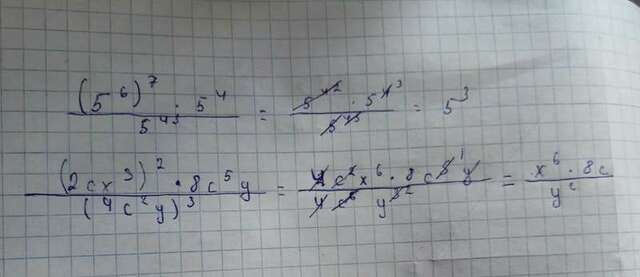 (5^6)^7 · 5^4 / 5^43 = 5^42 · 5^4 ^3 / 5^43 = 5^3
(2cx^3)^2 · 8c^5y / (4c^2y)^3 = 4c^2x^6 · 8c^5 ^1 y / 4c^6y^3 ^2 = x^6 · 8c / y^2